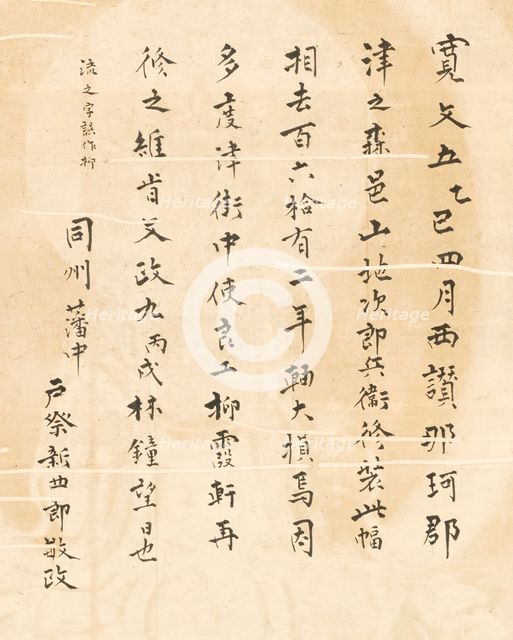 寛文五乙巳四月西讃那珂郡
津之森邑山地次郎兵衛修装此幅
相去百六拾有二年軸大損焉因
多度津街中使良工柳霞軒再
修之維肯文政九丙戌林鐘望日也
流之字誤作柳
同州藩中
戸祭新四郎敏政
Heritage
Heritage
Heritage
Heritage
Heritage
Heritage
Heritage
Heritage
Heritage
C